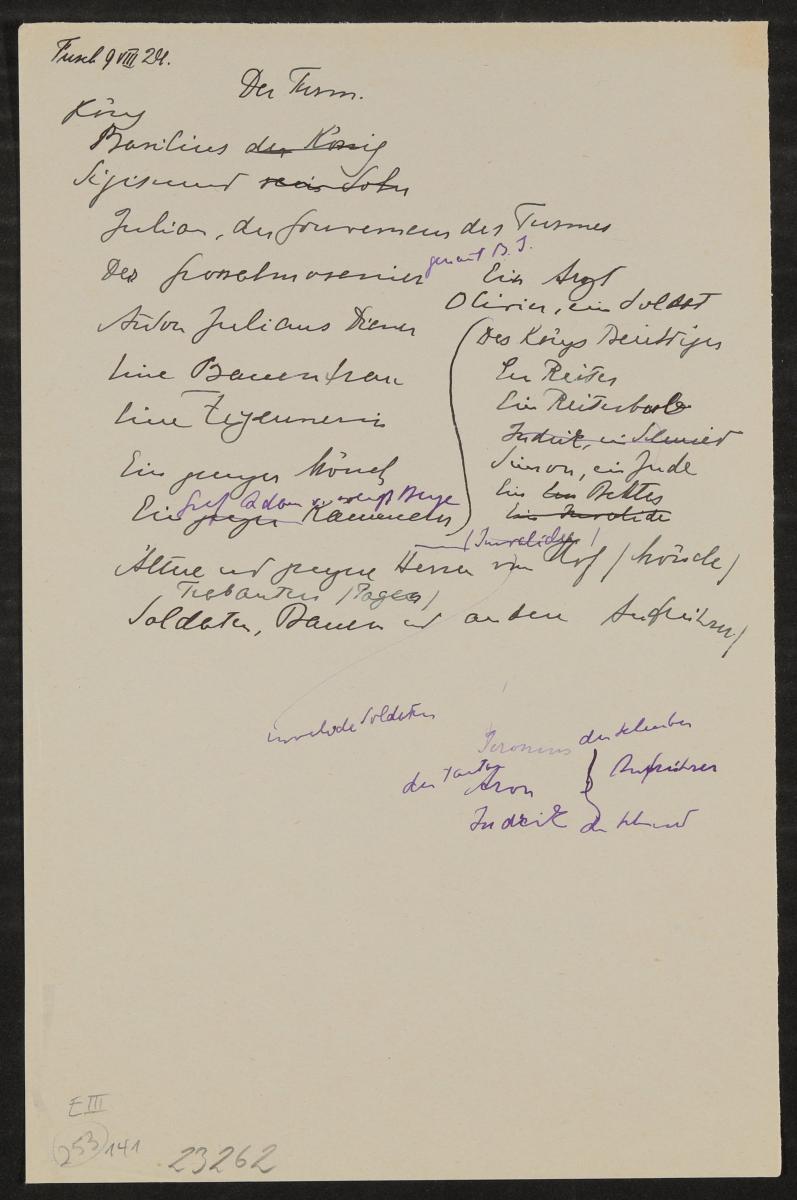 Fusch 9 VIII 24.
Der Turm.
König
Basilius der König
Sigismund sein Sohn
Julian, der Gouverneur des Turmes
Der Grossalmosenier
genannt B. I.
Ein Arzt
Olivier, ein Soldat
Anton Julians Diener
Eine Bauernfrau
Eine Zigeunerin
Ein junger Mönch
Graf Adam
Ein junger Kämmerer
Des Königs
Ein Reiter
Ein Reiterbube
Indrik, ein Schmied
Simon, ein Jude
Ein Bettler
Ein Invalide
(Invalide)
Ältere und jüngere Herren vom Hof (Mönche)
Trabanten (Pagen)
Soldaten, Bauern und andere Aufrührer)
invalide Soldaten
Jeronimus der Schreiber
der Tartar
Aron
Aufrührer
Indrik der Schmied
E III
253 141
23262